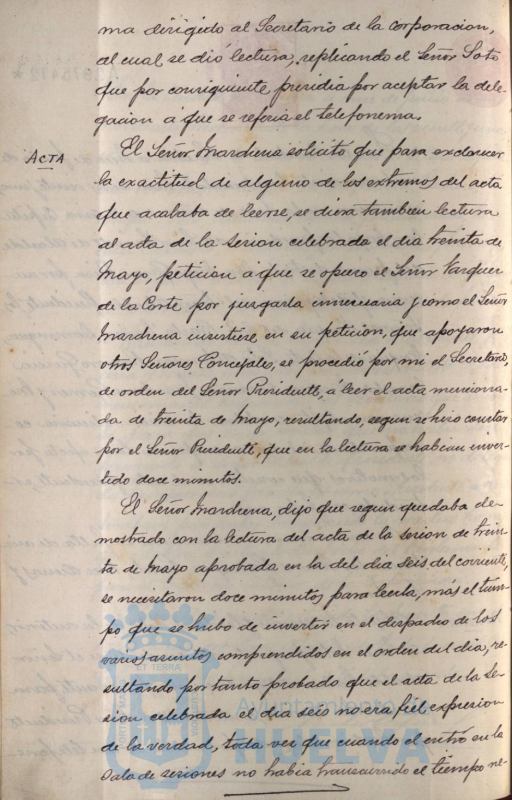 ma dirigido al Secretario de la corporacion,
al cual se dió lectura, replicando el Señor Soto
que por consiguiente presidia por aceptar la dele-
gacion á que se referia el telefonema.
ACTA
El Señor Marchena solicitó que para esclarecer
la exactitud de alguno de los extremos del acta
que acababa de leerse, se diera tambien lectura
al acta de la sesion celebrada el dia treinta de
Mayo, peticion á que se opuso el Señor Vazquez
de la Corte por juzgarla innecesaria y como el Señor
Marchena insistiese en su peticion, que apoyaron
otros Señores Concejales, se procedió por mi el Secretario,
de orden del Señor Presidente, á leer el acta menciona-
da de treinta de Mayo, resultando, segun se hizo constar
por el Señor Presidente, que en la lectura se habian inver-
tido doce minutos.
El Señor Marchena, dijo que segun quedaba de-
mostrado con la lectura del acta de la sesion de trein-
ta de Mayo aprobada en la del dia seis del corriente,
se necesitaron doce minutos para leerla, más el tiem-
po que se hubo de invertir en el despacho de los
varios asuntos comprendidos en el orden del dia, re-
sultando por tanto probado que el acta de la se-
sion celebrada el dia seis no era fiel expresion
de la verdad, toda vez que cuando el entró en la
Sala de sesiones no habia transcurrido el tiempo ne-
Ayuntamiento de
HUELVA